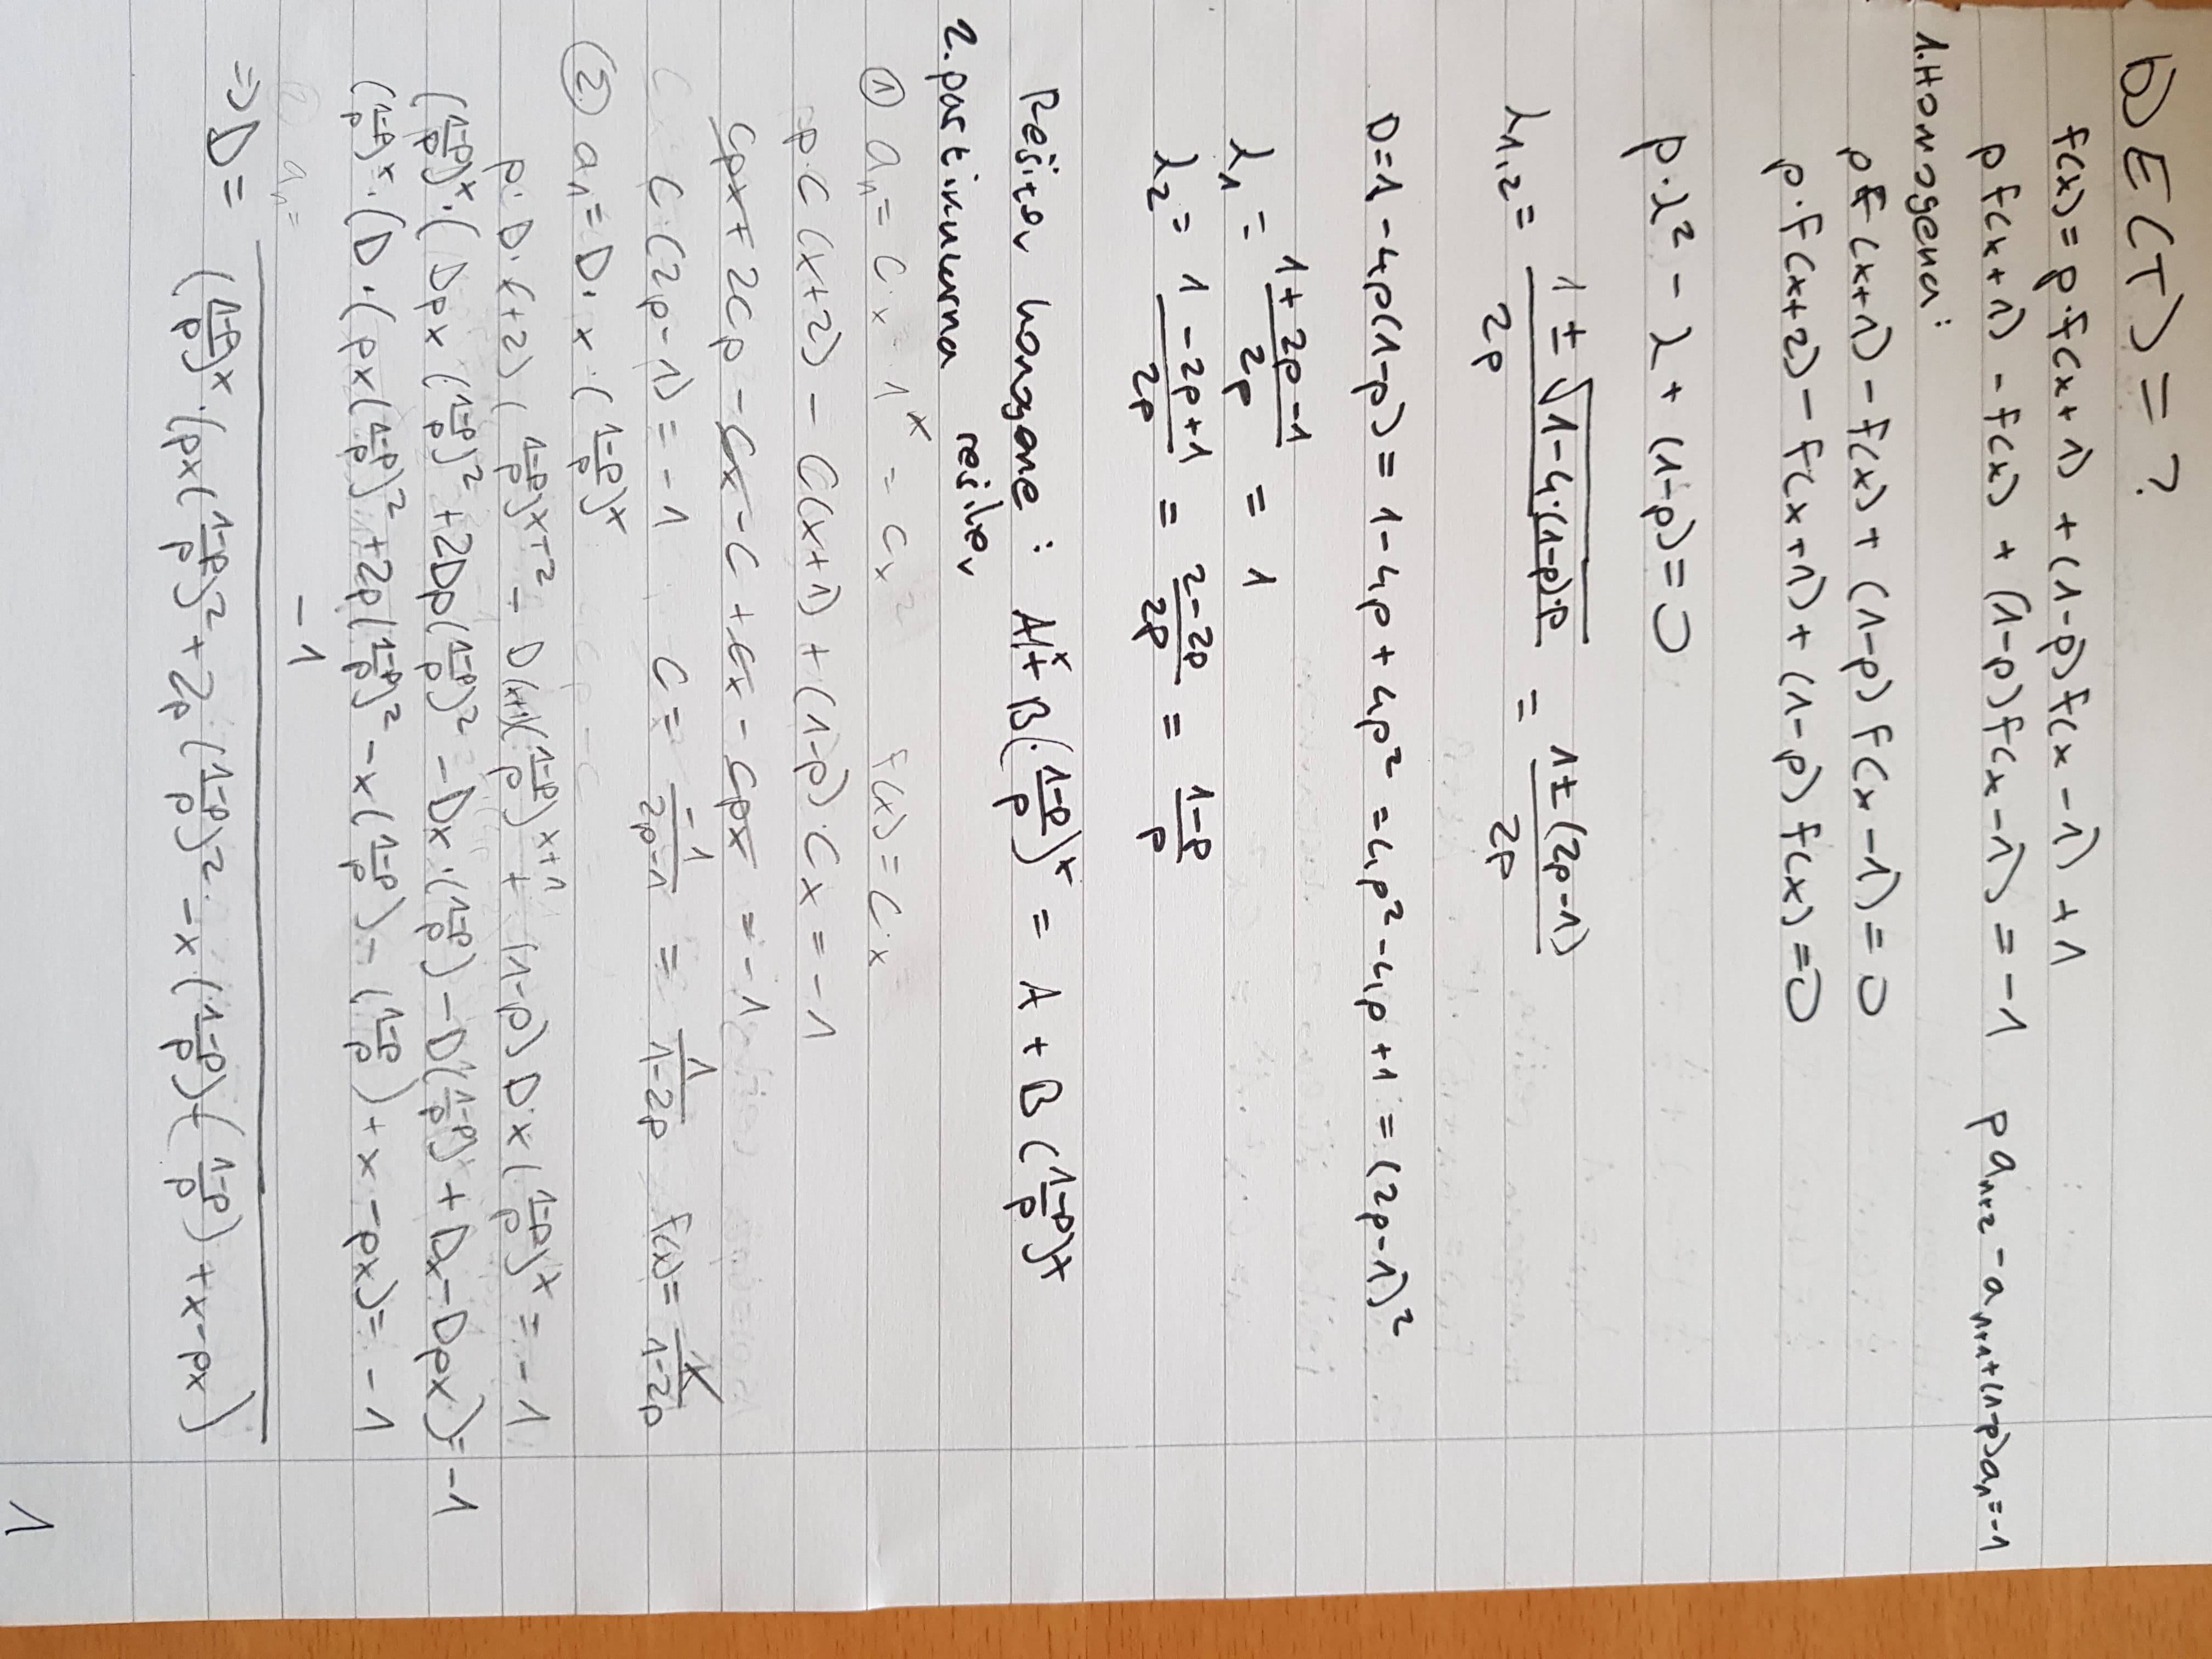 b) E(T) = ?
f(x) = p·f(x+1) + (1-p) f(x-1) + 1
p f(x+1) - f(x) + (1-p) f(x-1) = -1    p aₙ₊₂ - aₙ₊₁ + (1-p) aₙ = -1
1. Homogena:
p f(x+1) - f(x) + (1-p) f(x-1) = 0
p·f(x+2) - f(x+1) + (1-p) f(x) = 0
p·λ² - λ + (1-p) = 0
λ₁,₂ = (1 ± √(1-4·(1-p)·p)) / 2p = (1 ± (2p-1)) / 2p
D = 1 - 4p(1-p) = 1 - 4p + 4p² = 4p² - 4p + 1 = (2p-1)²
λ₁ = (1 + 2p - 1) / 2p = 1
λ₂ = (1 - 2p + 1) / 2p = (2-2p) / 2p = (1-p) / p
Rešitev homogene: A1ˣ + B(·(1-p)/p)ˣ = A + B((1-p)/p)ˣ
2. partikularna rešitev
① aₙ = C·x 1ˣ = Cx    f(x) = C·x
p·C(x+2) - C(x+1) + (1-p)·Cx = -1
Cpx + 2Cp - Cx - C + Cx - Cpx = -1
C·(2p-1) = -1    C = -1 / (2p-1) = 1 / (1-2p)    f(x) = x / (1-2p)
② aₙ = D·x·((1-p)/p)ˣ
p·D·(x+2)((1-p)/p)ˣ⁺² - D(x+1)((1-p)/p)ˣ⁺¹ + (1-p)Dx((1-p)/p)ˣ = -1
((1-p)/p)ˣ·(Dpx((1-p)/p)² + 2Dp((1-p)/p)² - Dx·((1-p)/p) - D((1-p)/p) + Dx - Dpx) = -1
((1-p)/p)ˣ·(D·(px((1-p)/p)² + 2p((1-p)/p)² - x((1-p)/p) - ((1-p)/p) + x - px) = -1
② aₙ =
⇒ D = -1 / (((1-p)/p)ˣ·(px((1-p)/p)² + 2p((1-p)/p)² - x((1-p)/p) - ((1-p)/p) + x - px)
1